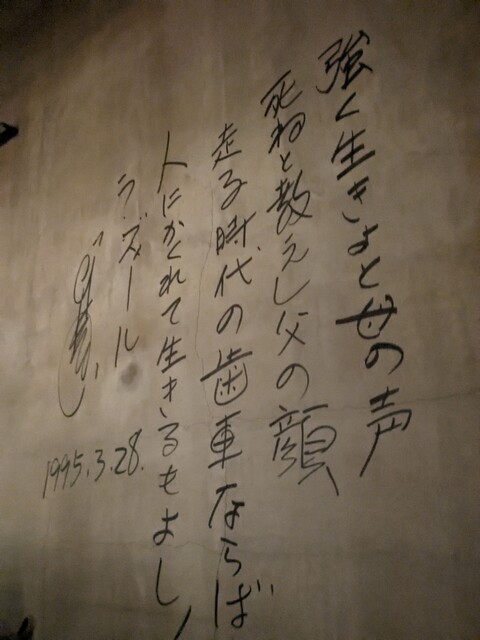 強く生きよと母の声
死ねと教えし父の顔
走る時代の歯車ならば
人にかくれて生きるもよし
ラ・ズール
1995.3.28.